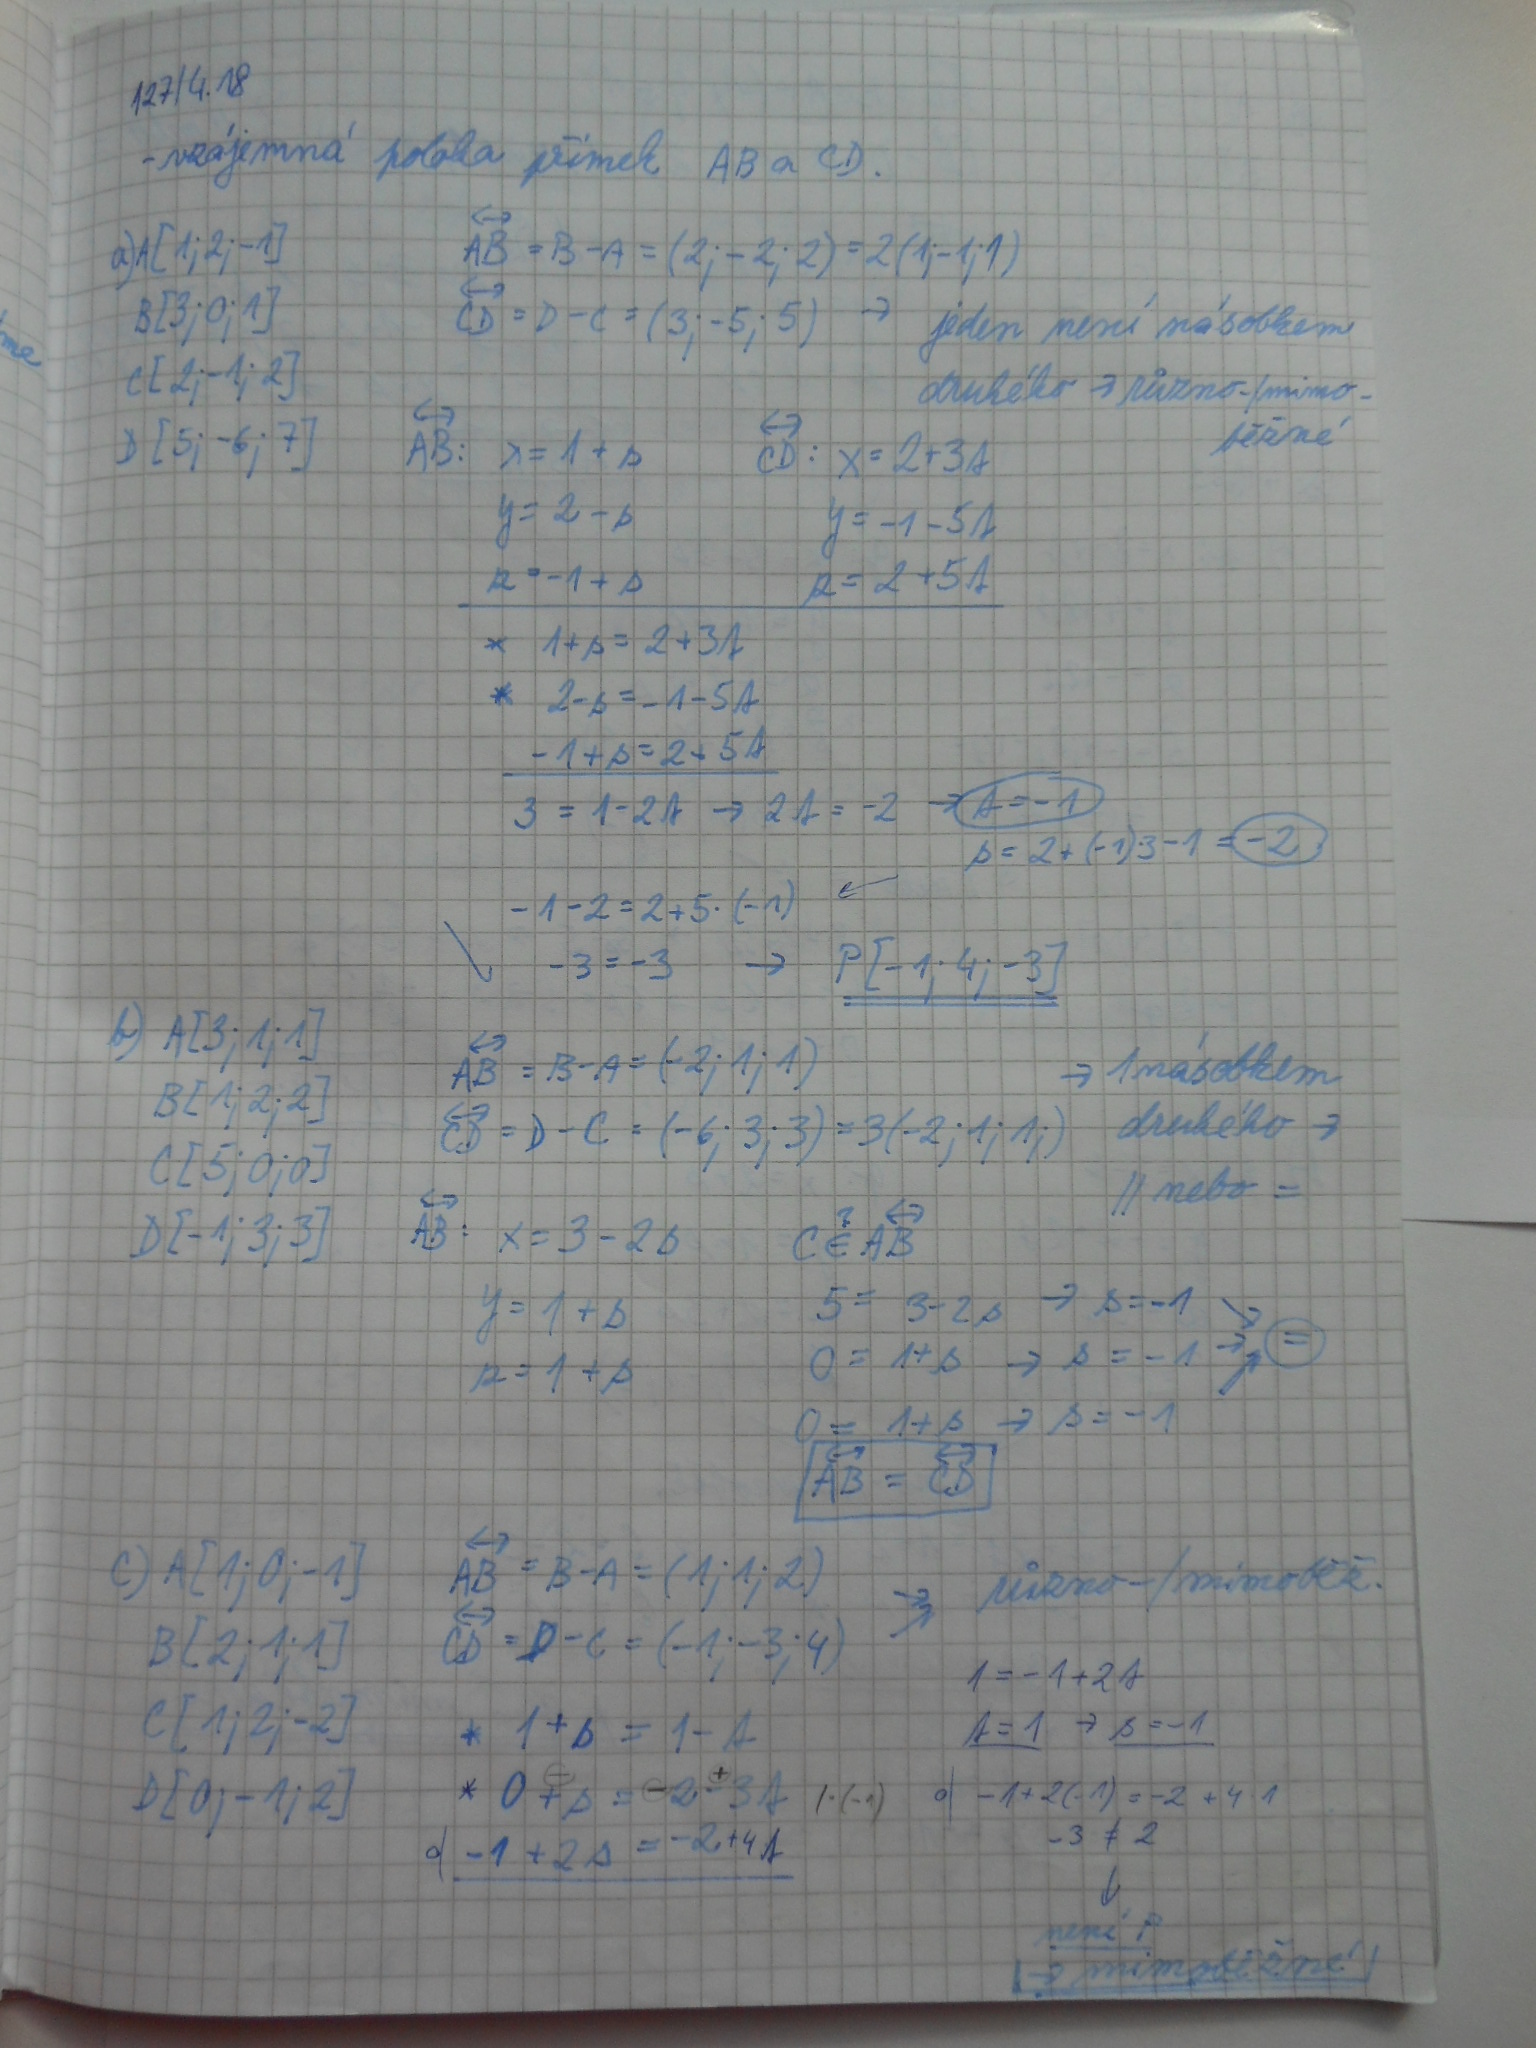 127/4.18
- vzájemná poloha přímek AB a CD.
a) A[1; 2; -1]
B[3; 0; 1]
C[2; -1; 2]
D[5; -6; 7]
AB = B - A = (2; -2; 2) = 2(1; -1; 1)
CD = D - C = (3; -5; 5) → jeden není násobkem
druhého → různo-/mimo-
běžné
AB: x = 1 + s CD: x = 2 + 3t
y = 2 - s y = -1 - 5t
z = -1 + s z = 2 + 5t
* 1 + s = 2 + 3t
* 2 - s = -1 - 5t
-1 + s = 2 + 5t
3 = 1 - 2t → 2t = -2 → t = -1
s = 2 + (-1)·3 - 1 = -2
-1 - 2 = 2 + 5·(-1) ←
-3 = -3 → P[-1; 4; -3]
b) A[3; 1; 1]
B[1; 2; 2]
C[5; 0; 0]
D[-1; 3; 3]
AB = B - A = (-2; 1; 1) → 1 násobkem
CD = D - C = (-6; 3; 3) = 3(-2; 1; 1;) druhého →
|| nebo =
AB: x = 3 - 2s C ?∈ AB
y = 1 + s 5 = 3 - 2s → s = -1
z = 1 + s 0 = 1 + s → s = -1 → =
0 = 1 + s → s = -1
AB = CD
c) A[1; 0; -1]
B[2; 1; 1]
C[1; 2; -2]
D[0; -1; 2]
AB = B - A = (1; 1; 2) → různo-/mimoběž.
CD = D - C = (-1; -3; 4)
* 1 + s = 1 - t
* 0 + s = 2 - 3t /·(-1)
-1 + 2s = -2 + 4t
1 = -1 + 2t
t = 1 → s = -1
-1 + 2(-1) = -2 + 4·1
-3 ≠ 2
↓
není P
→ mimoběžné